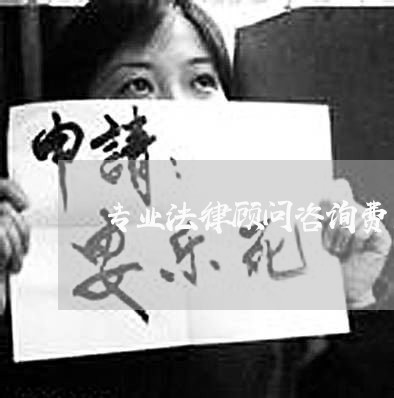 申請：
专业法律顾问咨询费
安乐死